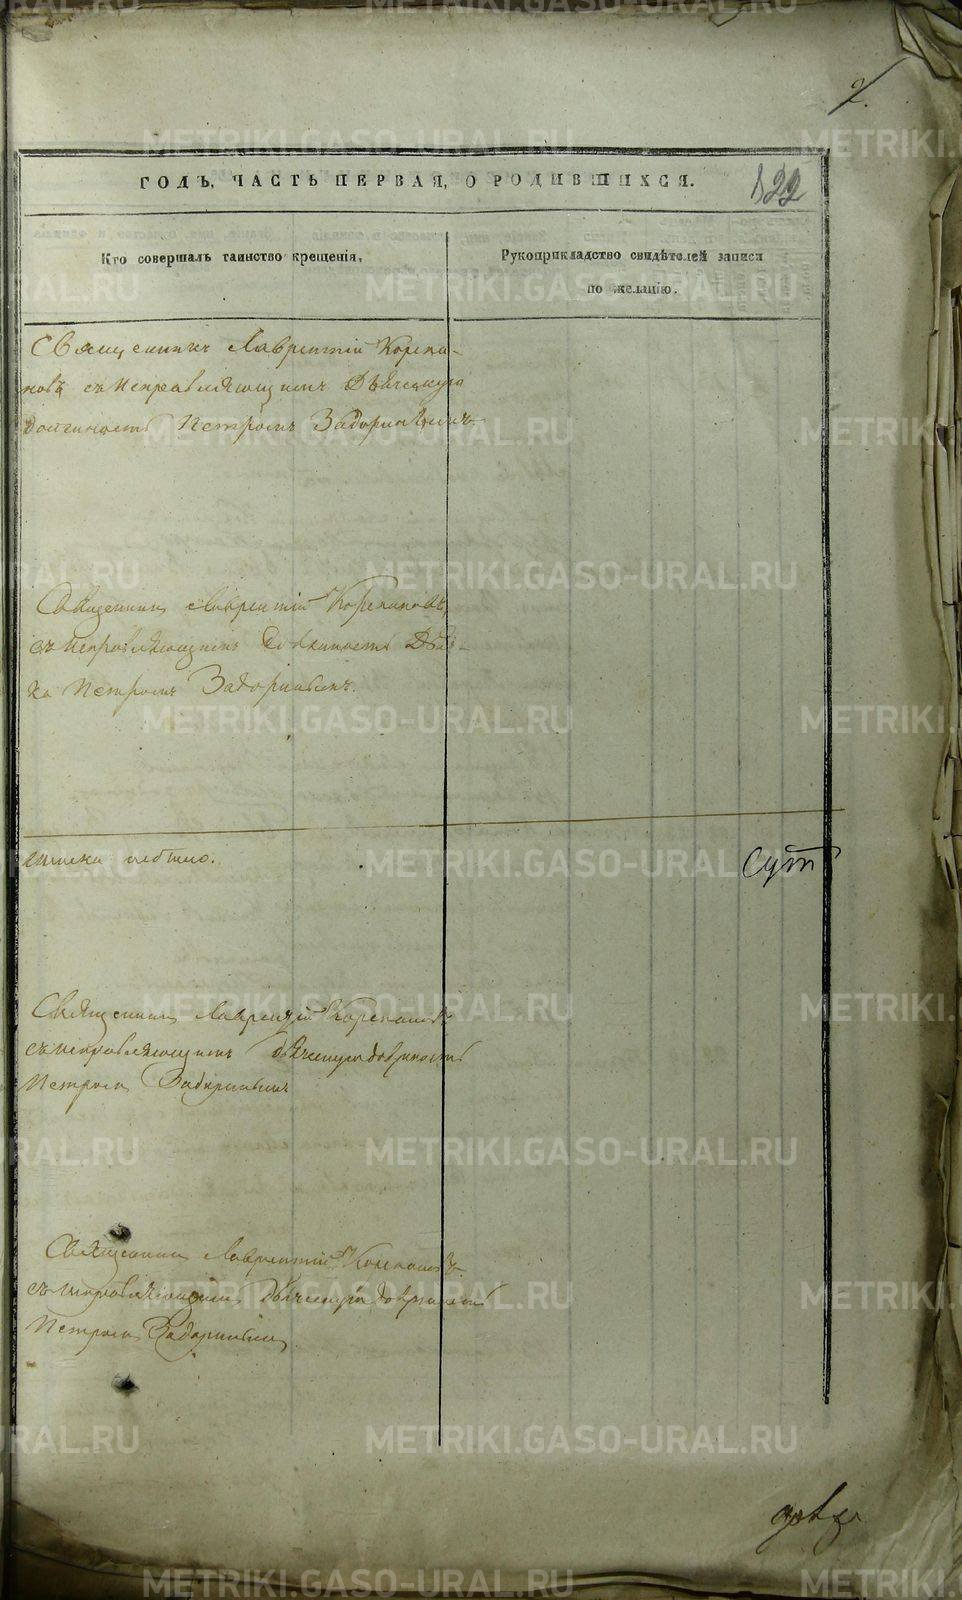 METRIKI.GASO-URAL.RU
2.
ГОДЪ, ЧАСТЬ ПЕРВАЯ, О РОДИВШИХСЯ.
122
Кто совершалъ таинство крещенія,
Рукоприкладство свидѣтелей записи
по желанію.
Священникъ Лаврентій Корепа-
новъ съ исправляющимъ Дьяческую
должность Петромъ Задоринымъ
Священникъ Лаврентій Корепановъ,
съ исправляющимъ должность Дьяч-
ка Петромъ Задоринымъ.
небыло.
Священникъ Лаврентій Корепановъ
съ исправляющимъ дьяческую должность
Петромъ Задоринымъ
Священникъ Лаврентій Корепановъ
съ исправляющимъ дьяческую должность
Петромъ Задоринымъ